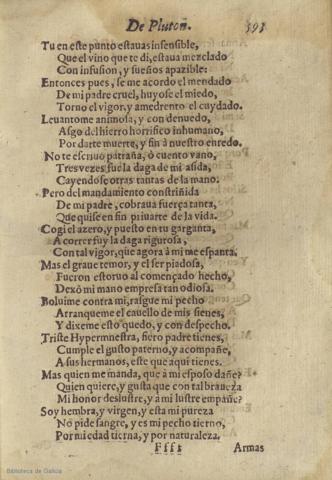 De Plutoñ. 593
Tu en este punto estauas insensible,
Que el vino que te di, estaua mezclado
Con infusion, y sueños apazible:
Entonces pues, se me acordo el mandado
De mi padre cruel, huyose el miedo,
Torno el vigor, y amedrento el cuydado.
Leuantome animosa, y con denuedo,
Asgo del hierro horrifico inhumano,
Por darte muerte, y fin à nuestro enredo.
No te escriuo patraña, ò cuento vano,
Tres vezes fue la daga de mi asida,
Cayendose otras tantas de la mano.
Pero del mandamiento constriñida
De mi padre, cobraua fuerça tanta,
Que quise en fin priuarte de la vida.
Cogi el azero, y puesto en tu garganta,
A correr fuy la daga rigurosa,
Con tal vigor, que agora à mi me espanta.
Mas el graue temor, y el ser piadosa,
Fueron estoruo al començado hecho,
Dexò mi mano empresa tan odiosa.
Boluime contra mi, rasgue mi pecho
Arranqueme el cauello de mis sienes,
Y dixeme esto quedo, y con despecho.
Triste Hypermnestra, fiero padre tienes,
Cumple el gusto paterno, y acompañe,
A sus hermanos, este que aqui tienes.
Mas quien me manda, que à mi esposo dañe?
Quien quiere, y gusta que con tal braueza
Mi honor deslustre, y à mi lustre empañe?
Soy hembra, y virgen, y esta mi pureza
No pide sangre, y es mi pecho tierno,
Por mi edad tierna, y por naturaleza.
Ffff Armas
Biblioteca de Galicia